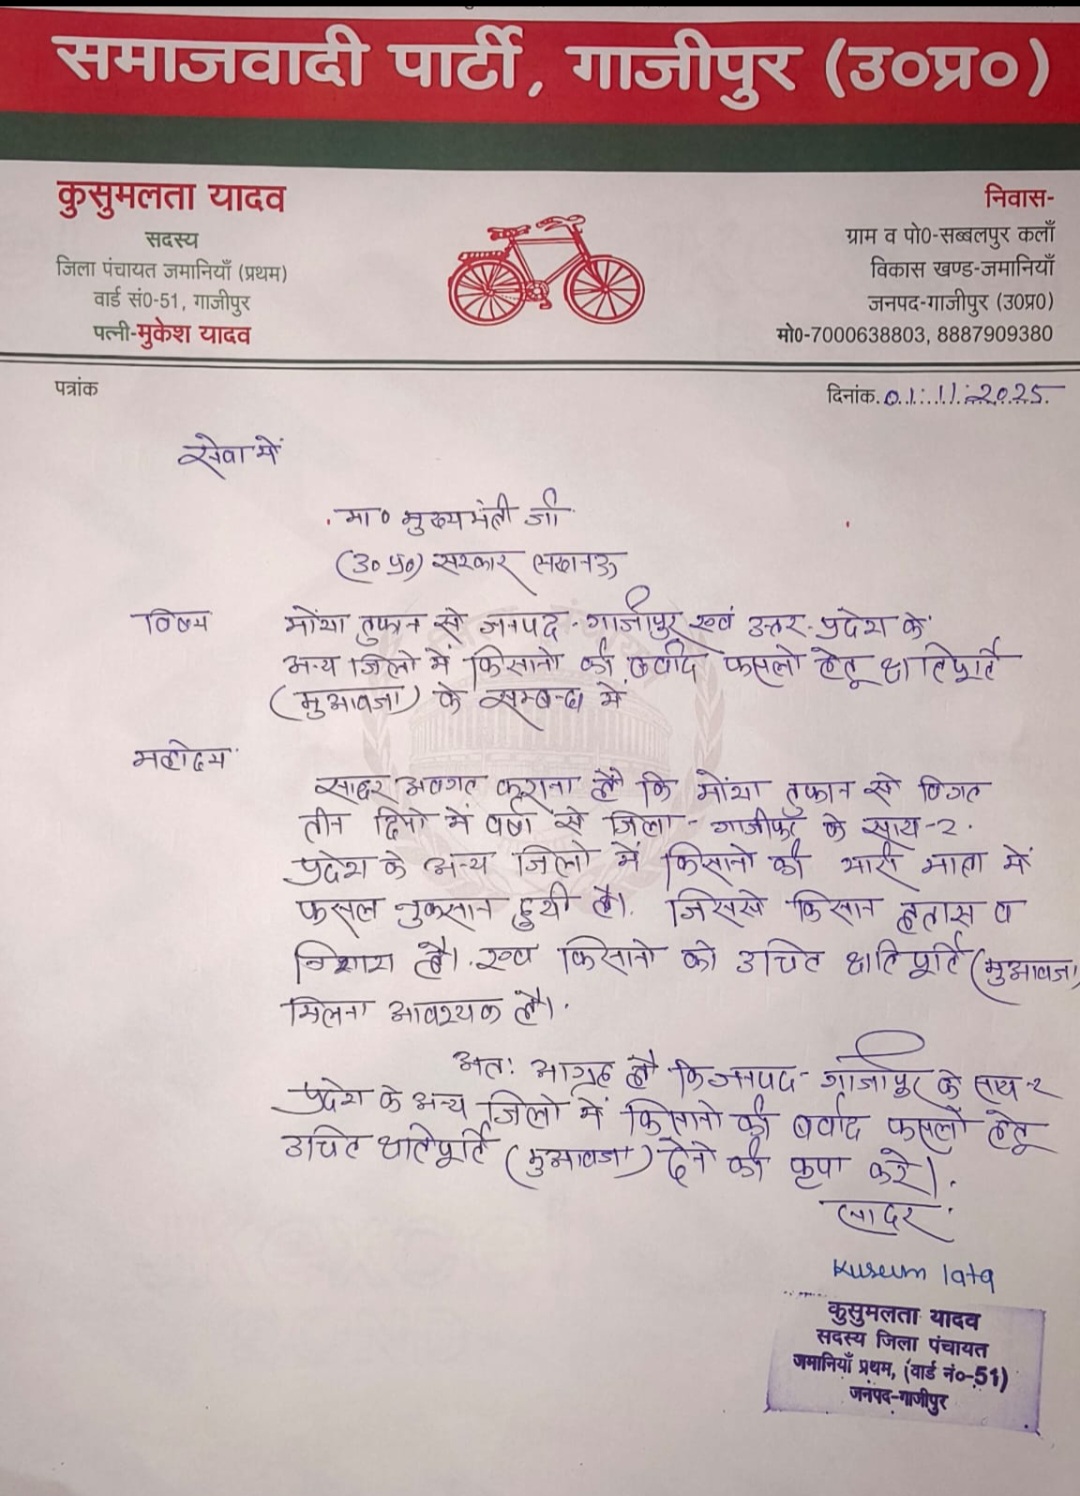 समाजवादी पार्टी, गाजीपुर (उ०प्र०)
कुसुमलता यादव
सदस्य
जिला पंचायत जमानियाँ (प्रथम)
वार्ड सं0-51, गाजीपुर
पत्नी-मुकेश यादव
निवास-
ग्राम व पो0-सब्बलपुर कलाँ
विकास खण्ड-जमानियाँ
जनपद-गाजीपुर (उ0प्र0)
मो0-7000638803, 8887909380
पत्रांक
दिनांक. 01.11.2025.
सेवा में
मा० मुख्यमंत्री जी
(उ० प्र०) सरकार लखनऊ
विषय मोंथा तुफान से जनपद-गाजीपुर एवं उत्तर-प्रदेश के
अन्य जिलो में किसानो की बर्वाद फसलो हेतू क्षतिपूर्ति
(मुआवजा) के सम्बन्ध में
महोदय
सादर अवगत कराना है कि मोंथा तुफान से विगत
तीन दिनो में वर्षा से जिला-गाजीपुर के साथ-2.
प्रदेश के अन्य जिलो में किसानो की भारी मात्रा में
फसल नुकसान हुयी है। जिससे किसान हतास व
निराश है। एवं किसानो को उचित क्षतिपूर्ति (मुआवजा)
मिलना आवश्यक है।
अतः आग्रह है कि जनपद-गाजीपुर के साथ-2
प्रदेश के अन्य जिलो में किसानो की बर्वाद फसलों हेतू
उचित क्षतिपूर्ति (मुआवजा) देने की कृपा करे।
सादर
Kusum lata
कुसुमलता यादव
सदस्य जिला पंचायत
जमानियाँ प्रथम, (वार्ड नं०-51)
जनपद-गाजीपुर